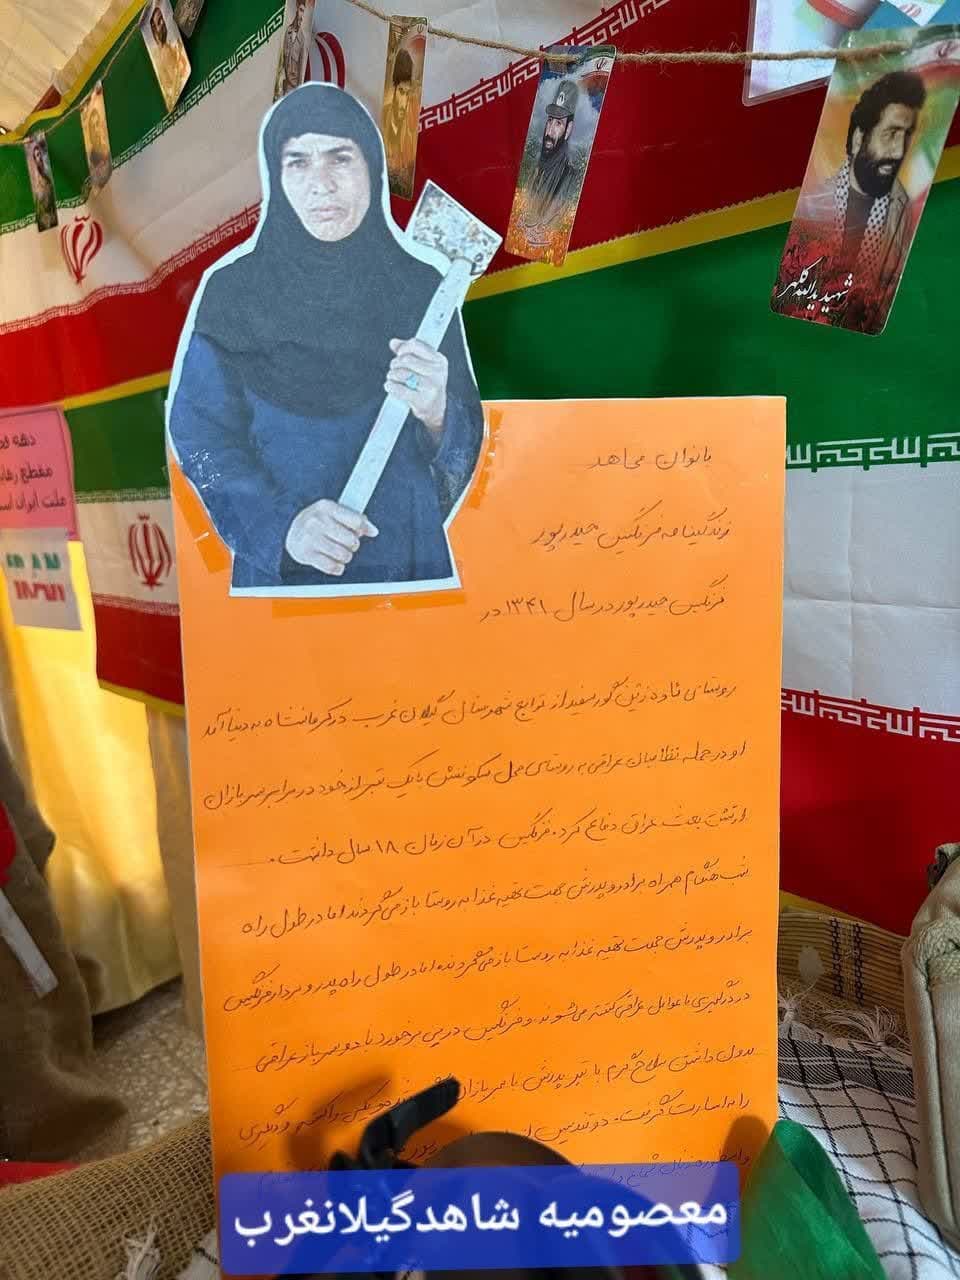 شهید یدالله کلهر
دهه ف
مقطع
ملت ایران اس
IRAN
بانوان مجاهد
زندگینامه فرنگیس حیدرپور
فرنگیس حیدرپور در سال ۱۳۴۱ در
روستای گورسفید از توابع شهرستان گیلان غرب در کرمانشاه به دنیا آمد
او در حمله نظامیان عراقی به روستای محل سکونتش با یک تبر از خود در برابر سربازان
ارتش بعث عراق دفاع کرد. فرنگیس در آن زمان ۱۸ سال داشت.
شب هنگام همراه برادر و پدرش جهت تهیه غذا به روستا باز می گردند اما در طول راه
برادر و پدرش جهت تهیه غذا به روستا باز می گردند اما در طول راه پدر و برادر فرنگیس
در درگیری با عوامل عراقی کشته می شوند و فرنگیس در پی برخورد با دو سرباز عراقی
بدون داشتن سلاح گرم با تبر پدرش با سربازان یکی را کشته و دیگری
را به اسارت گرفت. تندیس از
معصومیه شاهدگیلانغرب